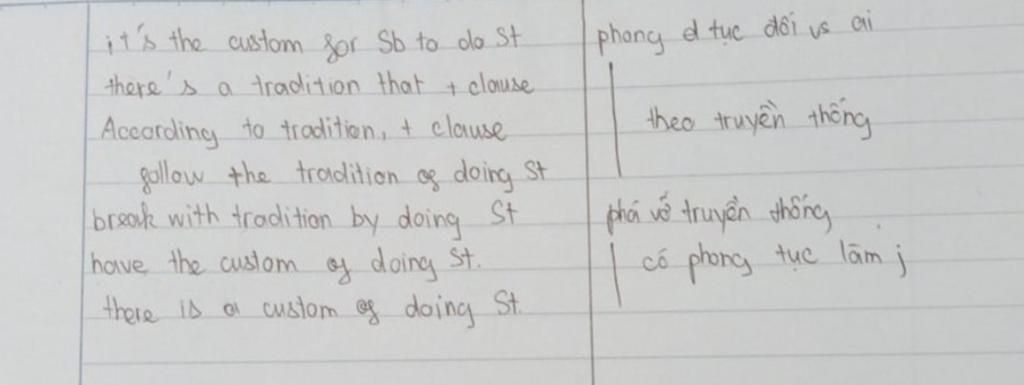 it's the custom for Sb to do St
phong d tục đối vs ai
there's a tradition that + clause
According to tradition, + clause
theo truyền thống
follow the tradition of doing St
break with tradition by doing St
phá vỡ truyền thống
have the custom of doing St.
có phong tục làm j
there is a custom of doing St.